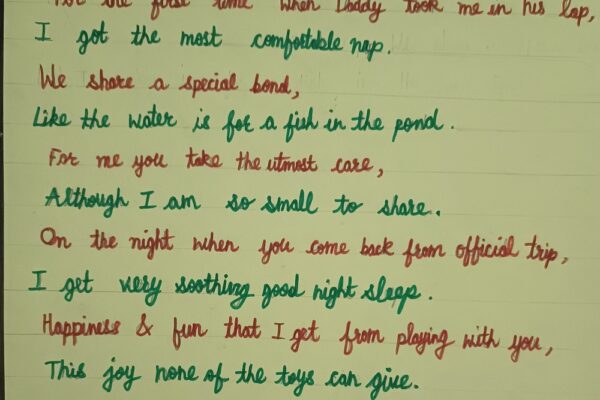 For the first time when Daddy took me in his lap,
I got the most comfortable nap.
We share a special bond,
Like the water is for a fish in the pond.
For me you take the utmost care,
Although I am so small to share.
On the night when you come back from official trip,
I get very soothing good night sleep.
Happiness & fun that I get from playing with you,
This joy none of the toys can give.